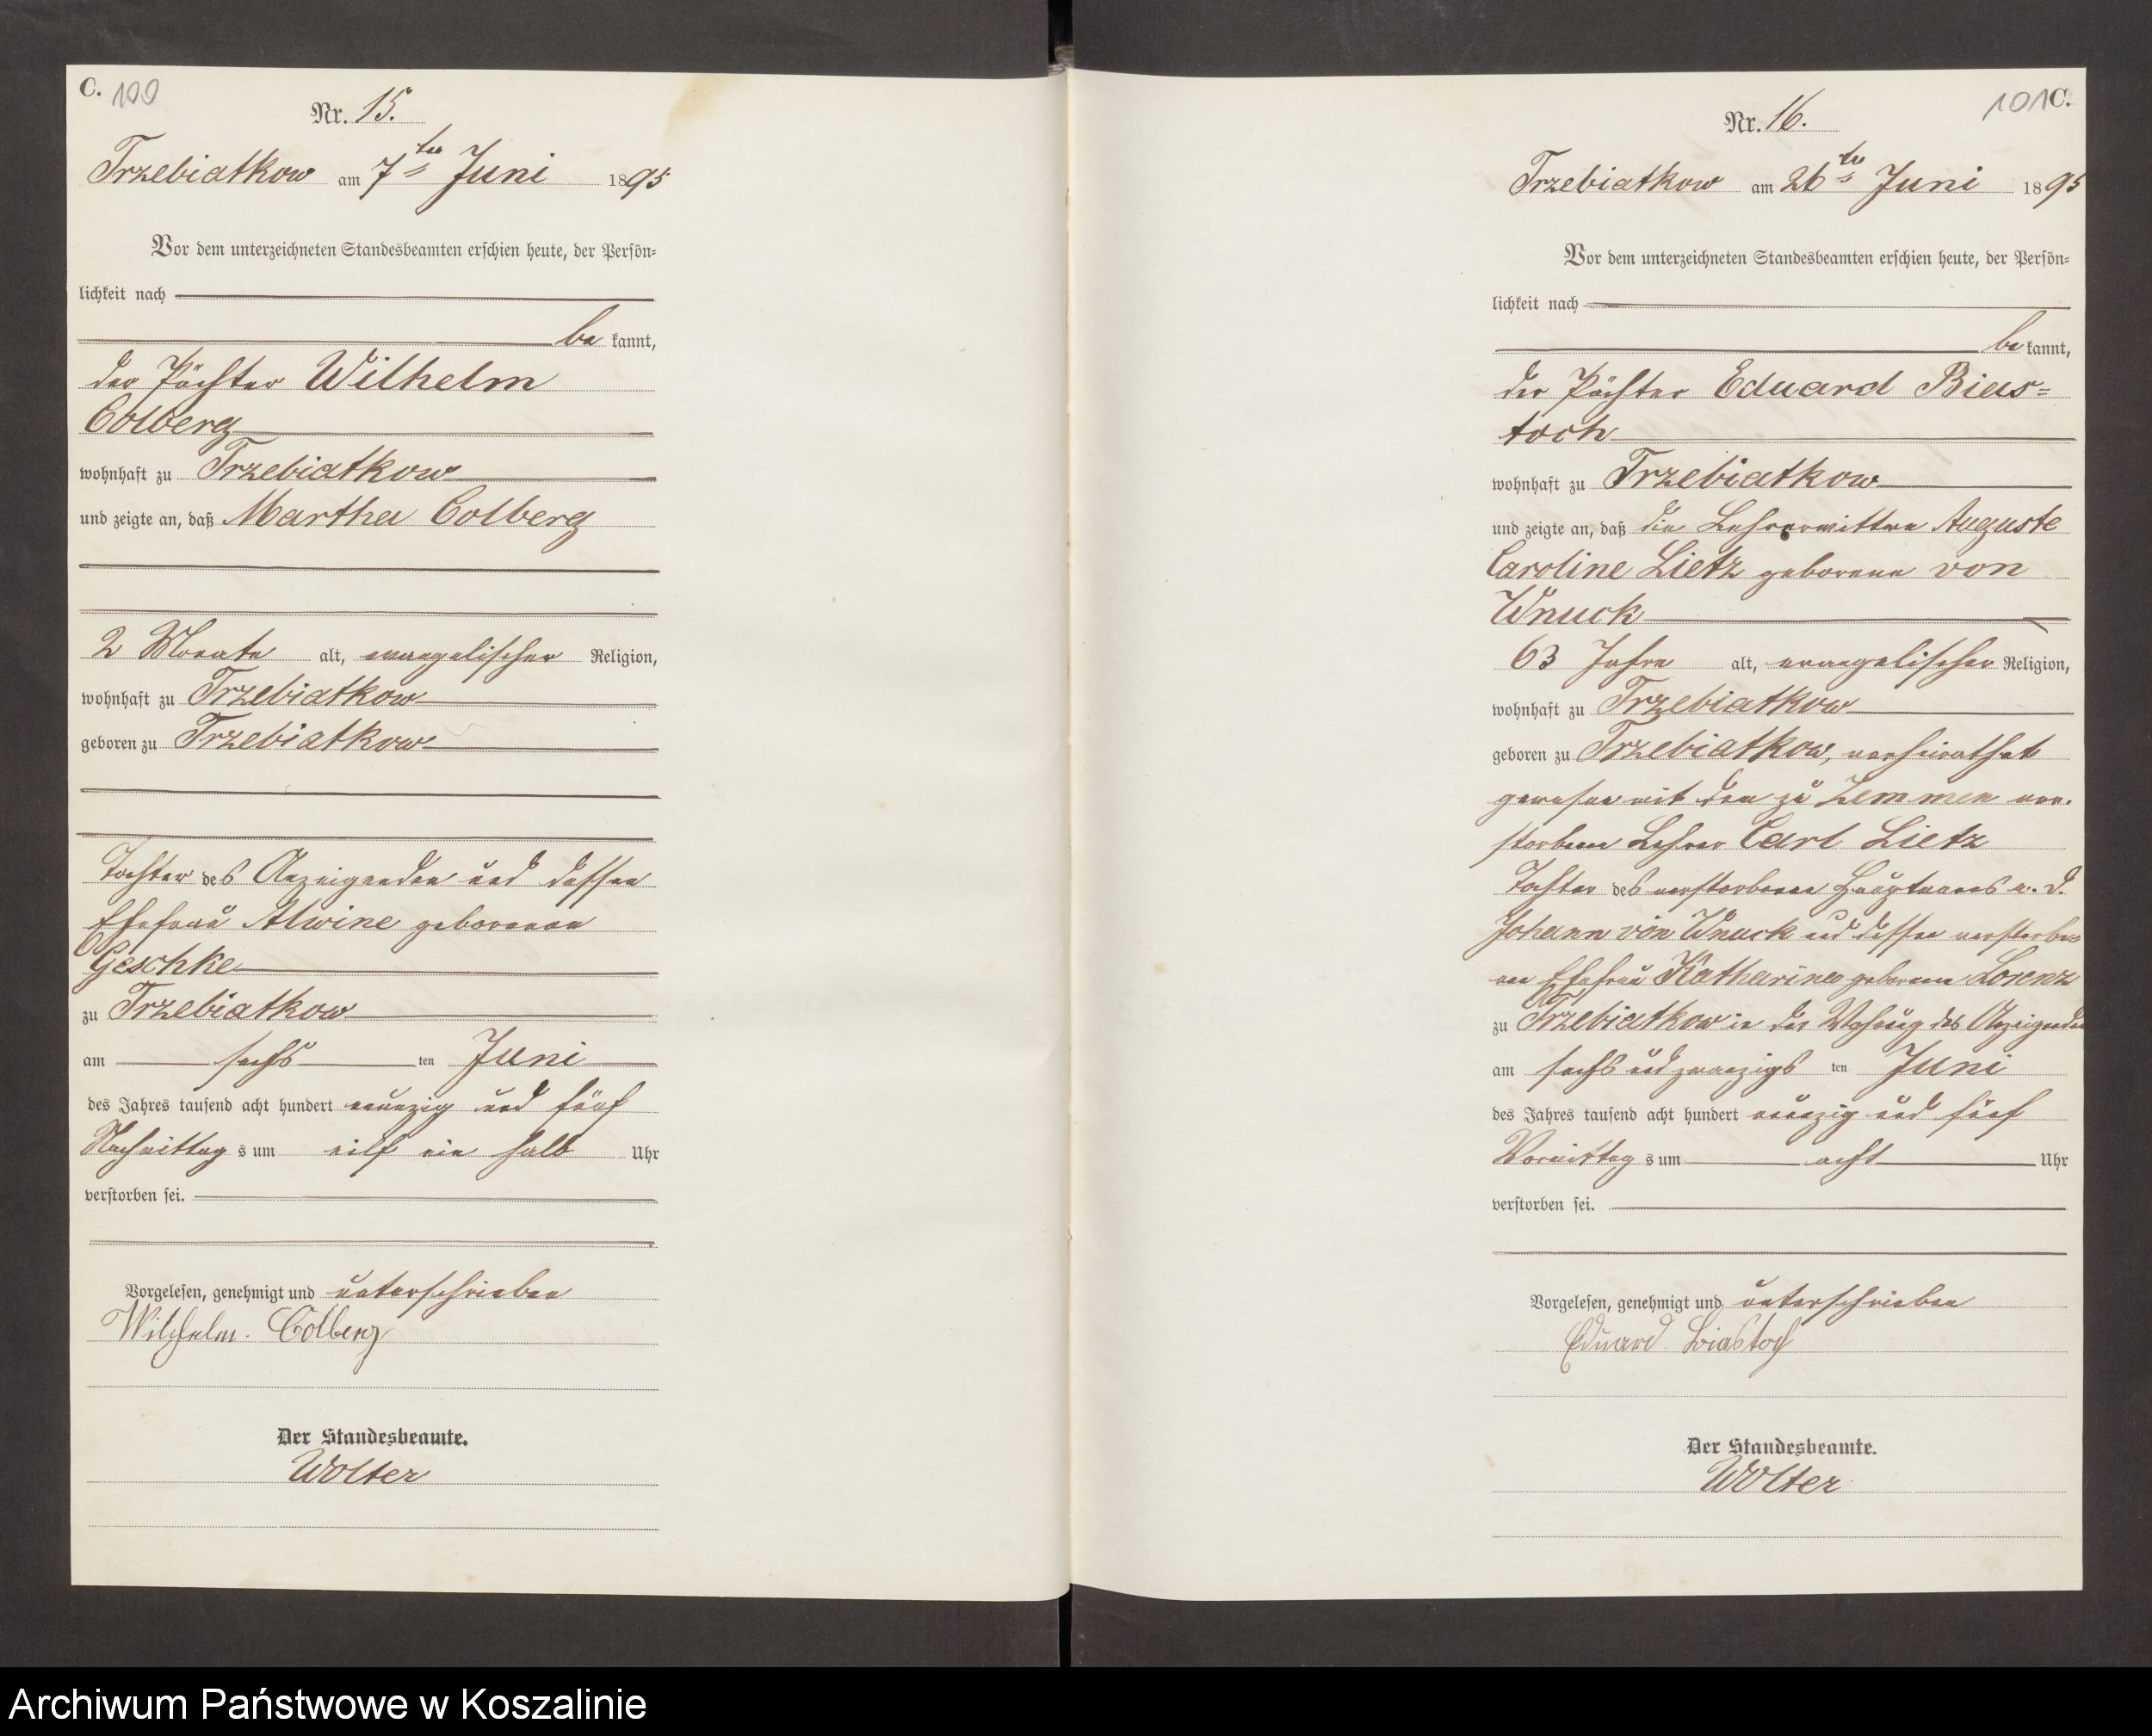 C. 100
Nr. 15.
Trzebiatkow am 7ten Juni 1895
Vor dem unterzeichneten Standesbeamten erschien heute, der Persön-
lichkeit nach
be kannt,
der Pächter Wilhelm
Colberg
wohnhaft zu Trzebiatkow
und zeigte an, daß Martha Colberg
2 Monate alt, evangelischer Religion,
wohnhaft zu Trzebiatkow
geboren zu Trzebiatkow
Tochter des Anzeigenden und dessen
Ehefrau Alwine geborenen
Geschke
zu Trzebiatkow
am sechs ten Juni
des Jahres tausend acht hundert neunzig und fünf
Nachmittag s um eilf ein halb Uhr
verstorben sei.
Vorgelesen, genehmigt und unterschrieben
Wilhelm. Colberg
Der Standesbeamte.
Wolter
101 C.
Nr. 16.
Trzebiatkow am 26ten Juni 1895
Vor dem unterzeichneten Standesbeamten erschien heute, der Persön-
lichkeit nach
be kannt,
der Pächter Eduard Bias-
toch
wohnhaft zu Trzebiatkow
und zeigte an, daß die Lehrerwittwe Auguste
Caroline Lietz geborene von
Wnuck
63 Jahre alt, evangelischer Religion,
wohnhaft zu Trzebiatkow
geboren zu Trzebiatkow, verheirathet
gewesen mit dem zu Zemmen ver-
storbenen Lehrer Carl Lietz
Tochter des verstorbenen Hauptmanns a. D.
Johann von Wnuck und dessen verstorbe-
nen Ehefrau Katharina geborenen Lorenz
zu Trzebiatkow in der Wohnung des Anzeigenden
am sechs und zwanzigs ten Juni
des Jahres tausend acht hundert neunzig und fünf
Vormittag s um acht Uhr
verstorben sei.
Vorgelesen, genehmigt und unterschrieben
Eduard Biastoch
Der Standesbeamte.
Wolter
Archiwum Państwowe w Koszalinie